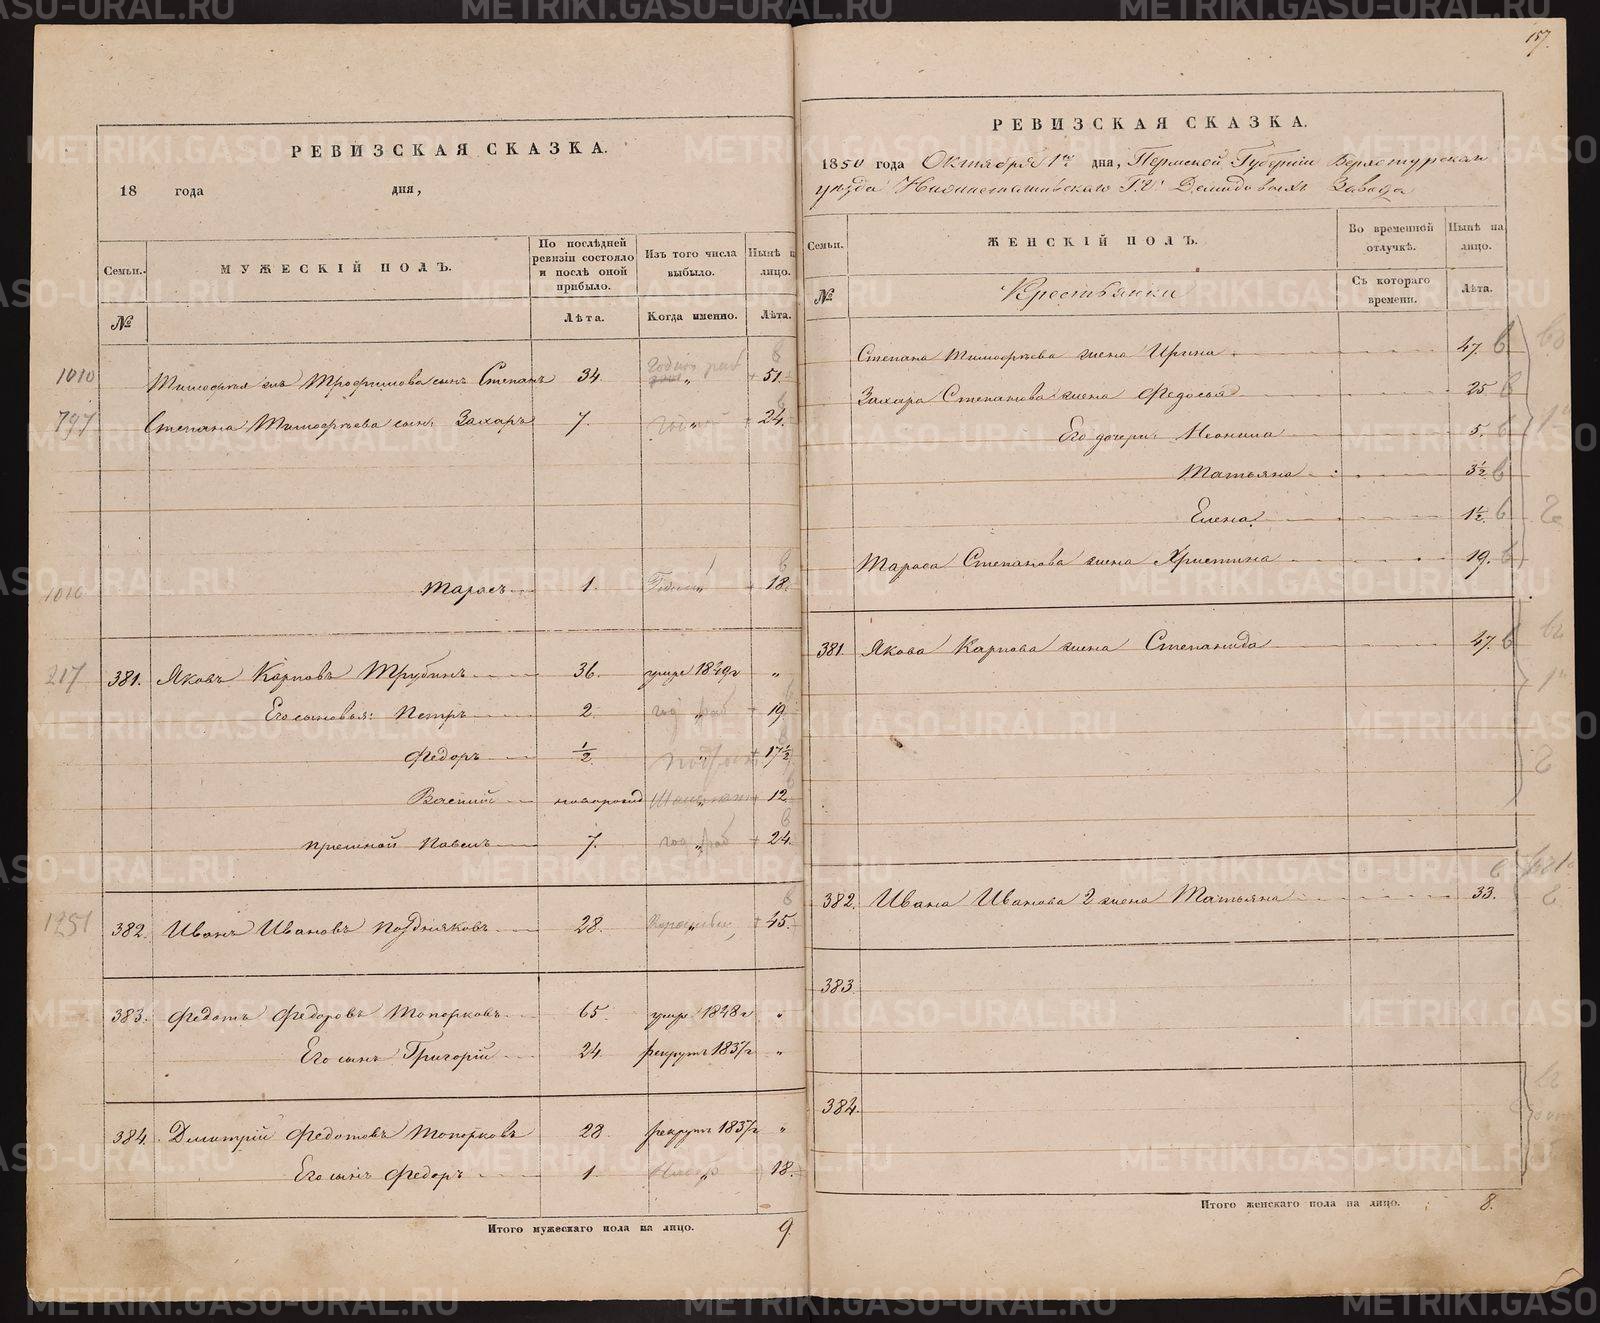 METRIKI.GASO-URAL.RU
157.
РЕВИЗСКАЯ СКАЗКА.
18 года дня,
Семьи.
МУЖЕСКІЙ ПОЛЪ.
По послѣдней ревизіи состояло и послѣ оной прибыло.
Изъ того числа выбыло.
Нынѣ на лицо.
№
Лѣта.
Когда именно.
Лѣта.
1010 Тимофея Трофимова сынъ Степанъ 34. „ 51.
797 Степана Тимофѣева сынъ Захаръ 7. „ 24.
1010 Тарасъ 1. „ 18.
217 381. Яковъ Карповъ Трубинъ 36. умре 1849г „
Его сыновья: Петръ 2. „ 19
Федоръ 1/2. „ 17 1/2
Василій новорожд „ 12.
Павелъ 7. „ 24.
1251 382. Иванъ Ивановъ Поздняковъ 28. „ 45.
383. Федотъ Федоровъ Топорковъ 65. умре 1848г „
Его сынъ Григорій 24. рекрутъ 1837г „
384. Дмитрій Федотовъ Топорковъ 28. рекрутъ 1837г „
Его сынъ Федоръ 1. „ 18.
Итого мужескаго пола на лицо. 9.
РЕВИЗСКАЯ СКАЗКА.
1850 года Октября 1го дня, Пермской Губерніи Верхотурскаго
уѣзда Нижнетагильскаго Г.г. Демидовыхъ Завода
Семьи.
ЖЕНСКІЙ ПОЛЪ.
Во временной отлучкѣ.
Нынѣ на лицо.
№
Крестьянки
Съ котораго времени.
Лѣта.
Степана Тимофѣева жена Ирина 47.
Захара Степанова жена Федосья 25
Его дочери: Неонила 5.
Татьяна 3 1/2
Елена 1 1/2.
Тараса Степанова жена Христина 19.
381. Якова Карпова жена Степанида 47.
382. Ивана Иванова 2 жена Татьяна 33.
383.
384.
Итого женскаго пола на лицо. 8.